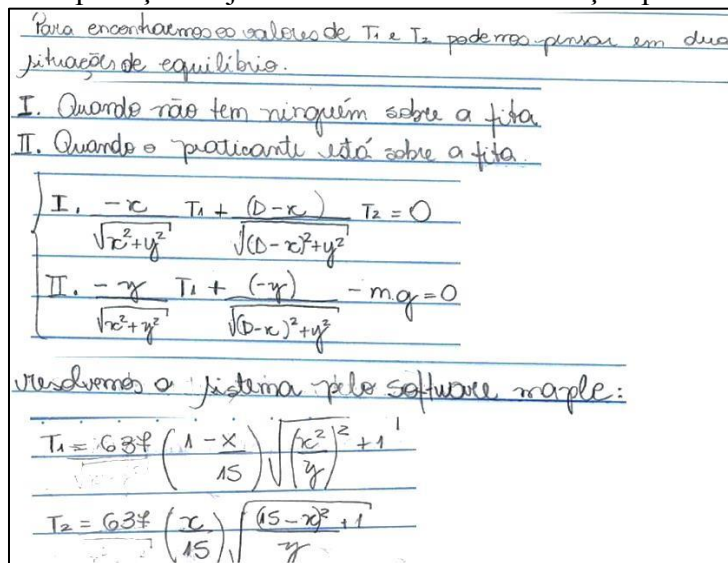 Para encontrarmos os valores de T₁ e T₂ podemos pensar em dua
situações de equilíbrio.
I. Quando não tem ninguém sobre a fita
II. Quando o praticante está sobre a fita.
I. -x/√(x²+y²) T₁ + (D-x)/√((D-x)²+y²) T₂ = 0
II. -y/√(x²+y²) T₁ + (-y)/√((D-x)²+y²) - m.g = 0
resolvemos o sistema pelo software maple:
T₁ = 637 (1 - x/15) √((x²/y)² + 1)
T₂ = 637 (x/15) √((15-x)²/y + 1)